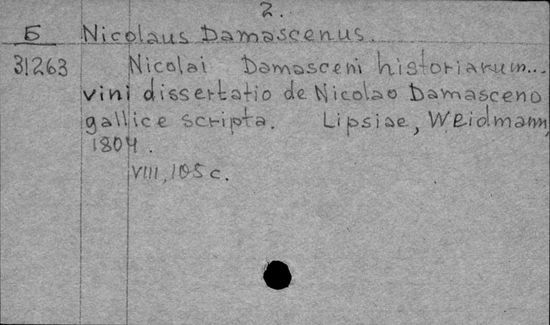 2.
Б Nicolaus Damascenus.
31263 Nicolai Damasceni historiarum...
vini dissertatio de Nicolao Damasceno
gallice scripta. Lipsiae, Weidmann,
1804.
VIII, 105 c.